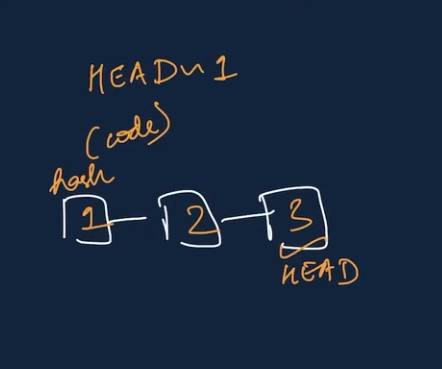 HEAD~1
(code)
hash
1 2 3
HEAD